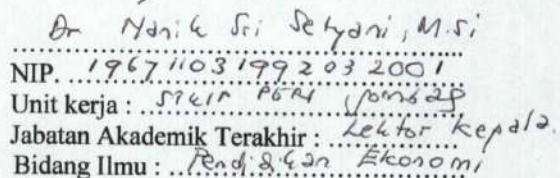 Dr Nanik Sri Setyani, M.Si
NIP. 196711031992032001
Unit kerja : STKIP PGRI Jombang
Jabatan Akademik Terakhir : Lektor Kepala
Bidang Ilmu : Pendidikan Ekonomi